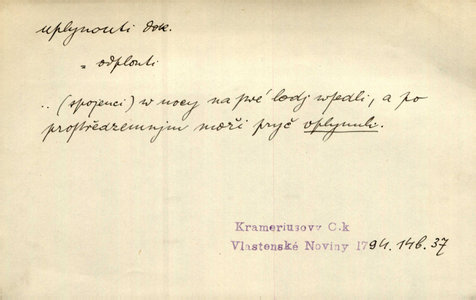 uplynouti dok.
„ odplouti
.. (spojenci) w nocy na swé lodj wsedli, a po
prostředzemnjm moři pryč uplynuli.
Krameriusovy C.k
Vlastenské Noviny 1794. 146. 37